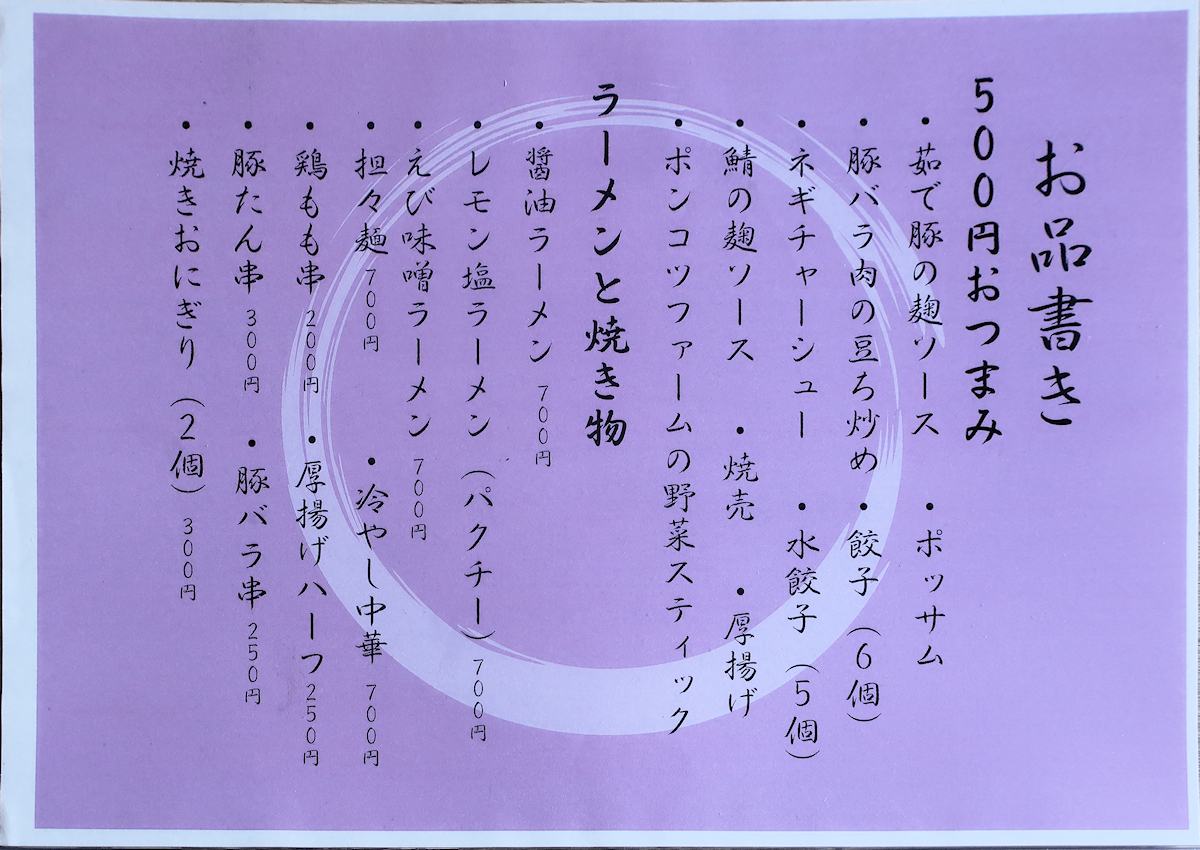 お品書き
500円おつまみ
・茹で豚の麹ソース ・ポッサム
・豚バラ肉の豆ち炒め ・餃子（6個）
・ネギチャーシュー ・水餃子（5個）
・鯖の麹ソース ・焼売 ・厚揚げ
・ポンコツファームの野菜スティック
ラーメンと焼き物
・醤油ラーメン 700円
・レモン塩ラーメン（パクチー）700円
・えび味噌ラーメン 700円
・担々麺 700円 ・冷やし中華 700円
・鶏もも串 200円 ・厚揚げハーフ 250円
・豚たん串 300円 ・豚バラ串 250円
・焼きおにぎり（2個）300円